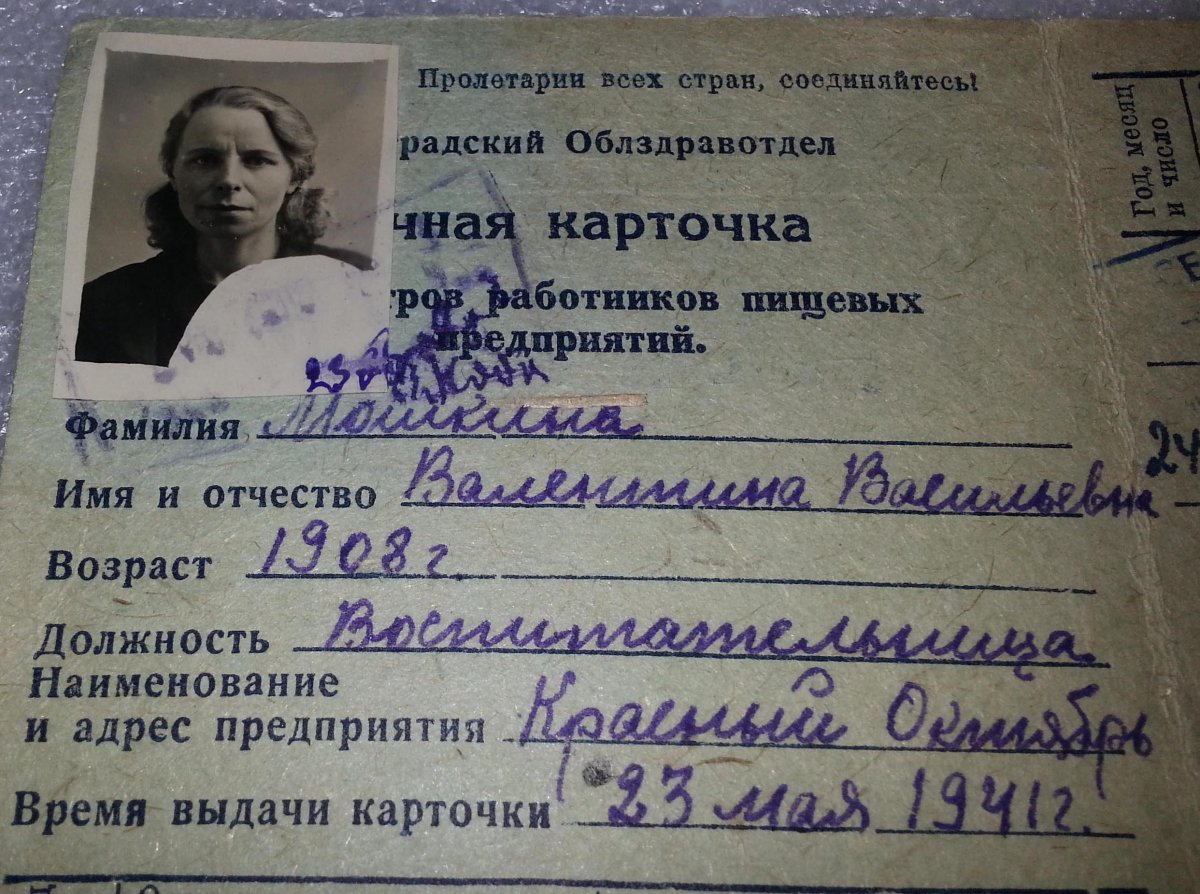 Пролетарии всех стран, соединяйтесь!
радский Облздравотдел
чная карточка
тров работников пищевых
предприятий.
Фамилия Мошкина
Имя и отчество Валентина Васильевна
Возраст 1908 г.
Должность Воспитательница
Наименование
и адрес предприятия Красный Октябрь
Время выдачи карточки 23 мая 1941 г.
Год, месяц
и число
24